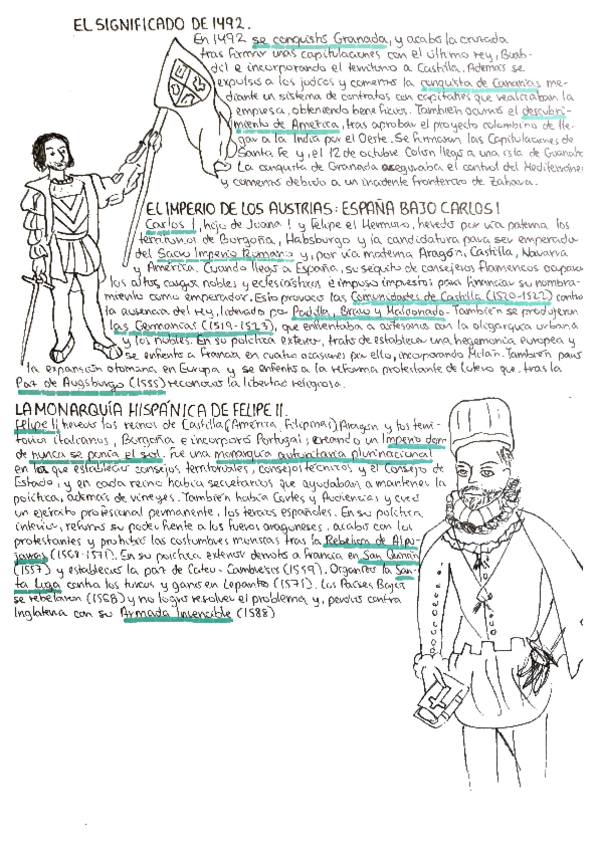 EL SIGNIFICADO DE 1492.
En 1492 se conquistó Granada, y acabó la cruzada
tras firmar unas capitulaciones con el último rey, Boab-
dil e incorporando el territorio a Castilla. Además se
expulsó a los judíos y comenzó la conquista de Canarias me-
diante un sistema de contratos con capitanes que realizaban la
empresa, obteniendo beneficios. También ocurrió el descubri-
miento de América, tras aprobar el proyecto colombino de lle-
gar a la India por el Oeste. Se firmaron las Capitulaciones de
Santa Fe y, el 12 de octubre Colón llegó a una isla de
La conquista de Granada aseguraba el control del
y comenzó debido a un incidente fronterizo de Zahara.
EL IMPERIO DE LOS AUSTRIAS: ESPAÑA BAJO CARLOS I
Carlos I, hijo de Juana I y Felipe el Hermoso, heredó por vía paterna los
territorios de Borgoña, Habsburgo y la candidatura para ser emperador
del Sacro Imperio Romano y, por vía materna Aragón, Castilla, Navarra
y América. Cuando llegó a España, su séquito de consejeros flamencos
los altos cargos nobles y eclesiásticos e impuso impuestos para financiar su nombra-
miento como emperador. Esto provocó las Comunidades de Castilla (1520-1522) contra
la ausencia del rey, liderado por Padilla, Bravo y Maldonado. También se produjeron
las Germanías (1519-1523), que enfrentaba a artesanos con la oligarquía urbana
y los nobles. En su política exterior, trató de establecer una hegemonía europea y
se enfrentó a Francia en cuatro ocasiones por ello, incorporando Milán. También
la expansión otomana en Europa y se enfrentó a la reforma protestante de Lutero que, tras la
Paz de Augsburgo (1555) reconoció la libertad religiosa.
LA MONARQUÍA HISPÁNICA DE FELIPE II.
Felipe II heredó los reinos de Castilla (América, Filipinas) Aragón y los terri-
torios italianos, Borgoña e incorporó Portugal; creando un Imperio
de nunca se ponía el sol. Fue una monarquía autoritaria plurinacional
en las que estableció consejos territoriales, consejos técnicos y el Consejo de
Estado, y en cada reino había secretarios que ayudaban a mantener la
política, además de virreyes. También había Cortes y Audiencias y creó
un ejército profesional permanente, los tercios españoles. En su política
interior, reforzó su poder frente a los fueros aragoneses, acabó con los
protestantes y prohibió las costumbres moriscas tras la Rebelión de Alpu-
jarras (1568-1571). En su política exterior derrotó a Francia en San Quintín
(1557) y estableció la paz de Cateu-Cambresis (1559). Organizó la San-
ta Liga contra los turcos y ganó en Lepanto (1571). Los Países Bajos
se rebelaron (1568) y no logró resolver el problema y, perdió contra
Inglaterra con su Armada Invencible (1588)